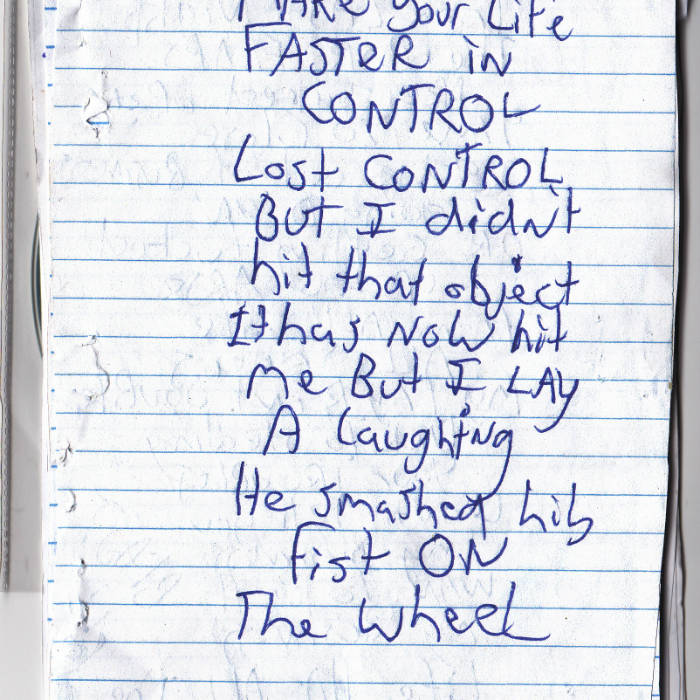 MAKE your Life
FASTER iN
CONTROL
Lost CONTROL
BUT I didNt
hit that object
It has NOW hit
me But I LAY
A laughiNg
He smashed his
fist ON
The wheeL